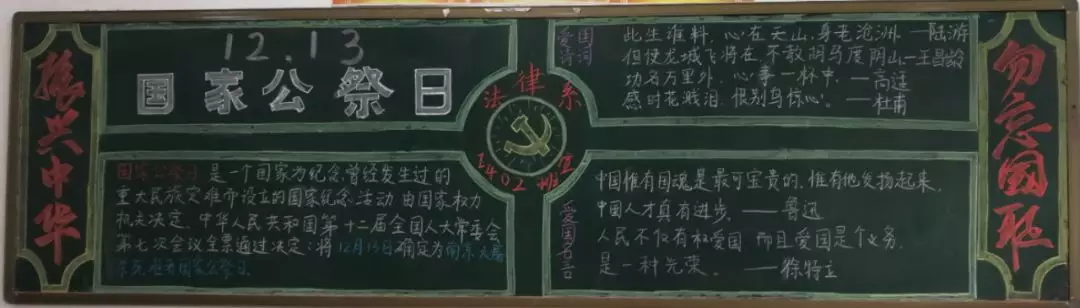 振兴中华
12.13
国家公祭日
国家公祭日是一个国家为纪念曾经发生过的
重大民族灾难而设立的国家纪念活动 由国家权力
机关决定。中华人民共和国第十二届全国人大常委会
第七次会议全票通过决定:将12月13日确定为南京大屠
国家公祭日
法律系
1402班宣
爱国诗词
此生谁料,心在天山,身老沧洲 —陆游
但使龙城飞将在 不教胡马度阴山—王昌龄
功名万里外,心事一杯中。—高适
感时花溅泪,恨别鸟惊心。—杜甫
爱国名言
中国惟有国魂是最可宝贵的,惟有他发扬起来,
中国人才真有进步。——鲁迅
人民不仅有权爱国 而且爱国是个义务,
是一种光荣。——徐特立
勿忘国耻